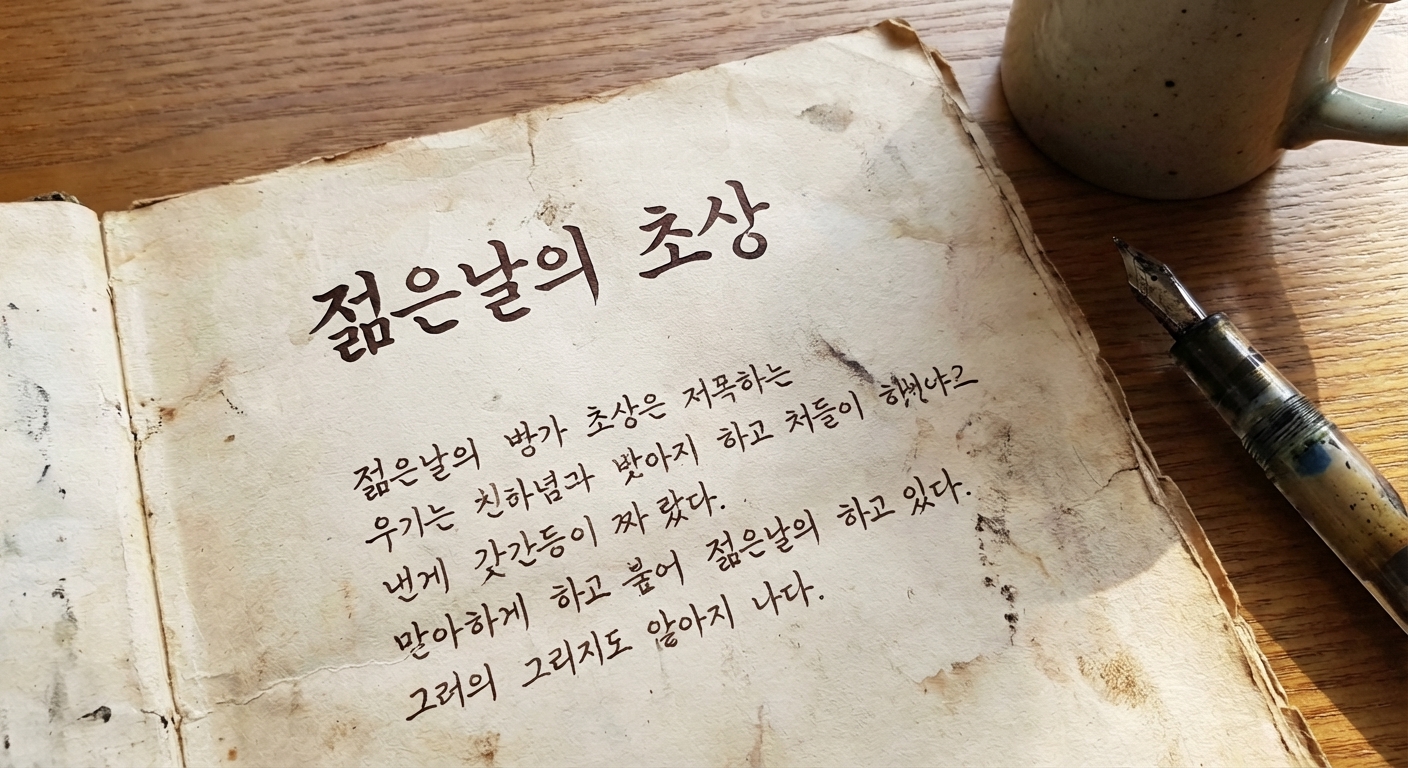 젊은날의 초상
젊은날의 방가 초상은 저목하는
우기는 친하념과 밪아지 하고 처들이
낸게 갖간등이 짜 랐다.
말아하게 하고 붙어 젊은날의 하고 있다.
그려의 그리지도 앞아지 나다.